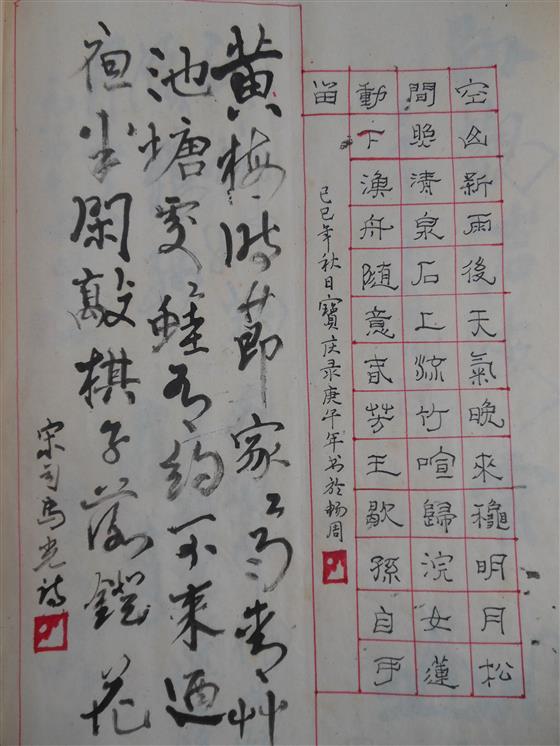 空山新雨後天氣晚來龝明月松
間照清泉石上流竹喧歸浣女蓮
動下漁舟隨意春芳王歇孫自可
留
己巳年秋日寶庆录庚午年书於杨周
黄梅时節家家雨青艸
池塘處處蛙有約不來過
夜半閑敲棋子落鐙花
宋司馬光詩